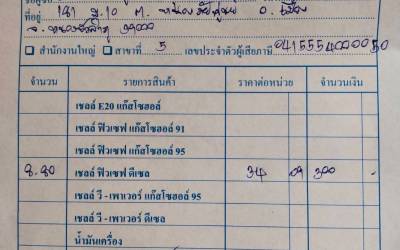 ที่อยู่ 181 ม.10 ต. หนองบัว อ. เมือง
จ. หนองบัวลำภู 39000
สำนักงานใหญ่ สาขาที่ 5 เลขประจำตัวผู้เสียภาษี
จำนวน รายการสินค้า ราคาต่อหน่วย จำนวนเงิน
เชลล์ E20 แก๊สโซฮอล์
เชลล์ ฟิวเซฟ แก๊สโซฮอล์ 91
เชลล์ ฟิวเซฟ แก๊สโซฮอล์ 95
8.80 เชลล์ ฟิวเซฟ ดีเซล 34 09 300 -
เชลล์ วี - เพาเวอร์ แก๊สโซฮอล์ 95
เชลล์ วี - เพาเวอร์ ดีเซล
น้ำมันเครื่อง